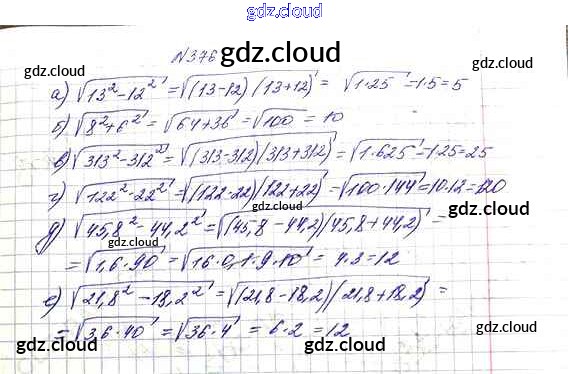 gdz.cloud
N376
gdz.cloud
gdz.cloud gdz.cloud
а) √13²-12² = √(13-12)(13+12) = √1·25 = 1·5=5
gdz.cloud
б) √8²+6² = √64+36 = √100 = 10
в) √313²-312² = √(313-312)(313+312) = √1·625 = 1·25=25
г) √122²-22² = √(122-22)(122+22) = √100·144 = 10·12=120
gdz.cloud gdz.cloud
д) √45,8²-44,2² = √(45,8-44,2)(45,8+44,2) =
= √1,6·90 = √16·0,1·9·10 = 4·3=12
gdz.cloud
е) √21,8²-18,2² = √(21,8-18,2)(21,8+18,2) =
= √3,6·40 = √36·4 = 6·2 = 12
gdz.cloud gdz.cloud gdz.cloud